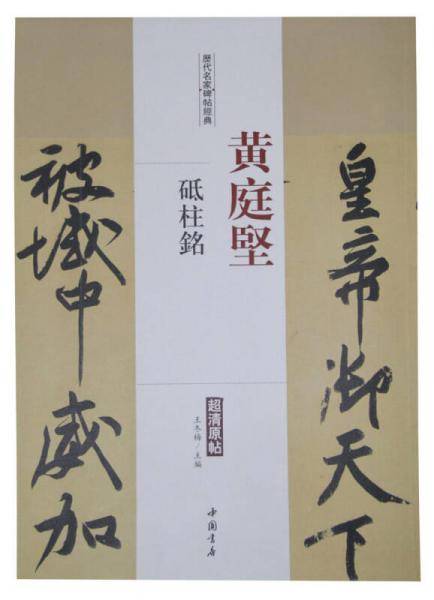 皇帝御天下
黄庭堅
歷代名家碑帖經典
砥柱銘
超清原帖
王冬梅／主編
中國書店
被域中威加